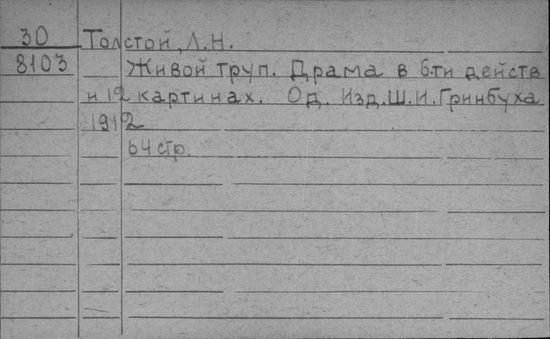 30 Толстой, Л.Н.
8103 Живой труп. Драма в 6-ти действ
и 12 картинах. Од. Изд. Ш.И. Гринбуха
1912
64 стр.